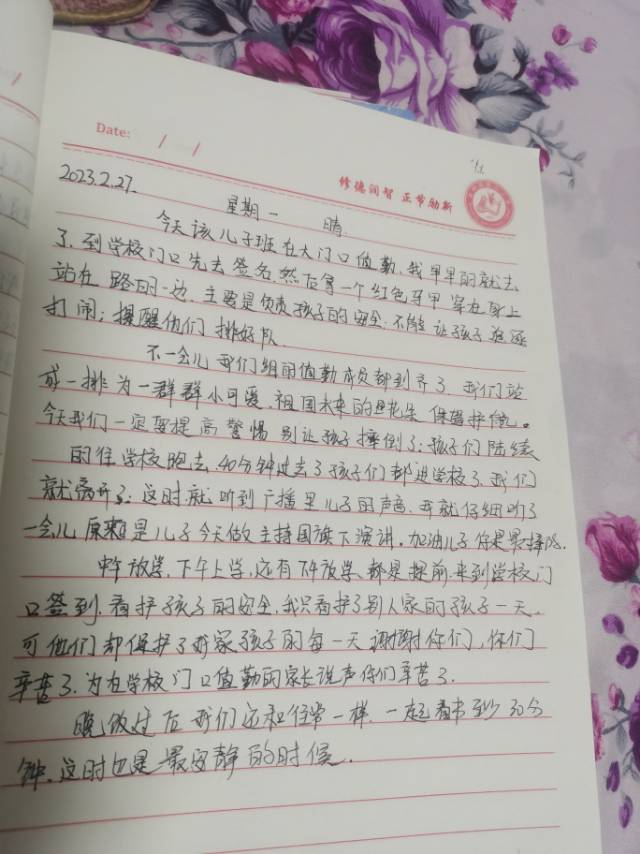 Date: / /
修德润智 正节励新
2023.2.27.
星期一 晴
今天该儿子班在大门口值勤,我早早的就去
了,到学校门口先去签名,然后拿一个红色马甲穿在身上
站在路的一边,主要是负责孩子的安全,不能让孩子追逐
打闹;提醒他们排好队.
不一会儿我们组的值勤成员都到齐了,我们站
成一排为一群群小可爱,祖国未来的花朵保驾护航。
今天我们一定要提高警惕别让孩子摔倒了;孩子们陆续
的往学校跑去,40分钟过去了孩子们都进学校了,我们
就离开了;这时就听到广播里儿子的声音,我就仔细听了
一会儿原来是儿子今天做主持国旗下演讲,加油儿子你是最棒哒.
中午放学,下午上学,还有下午放学都是提前来到学校门
口签到,看护孩子的安全,我只看护了别人家的孩子一天,
可他们都保护了我家孩子的每一天谢谢你们,你们
辛苦了,为在学校门口值勤的家长说声你们辛苦了.
晚饭过后我们还和往常一样,一起看书至少30分
钟,这时也是最安静的时候.